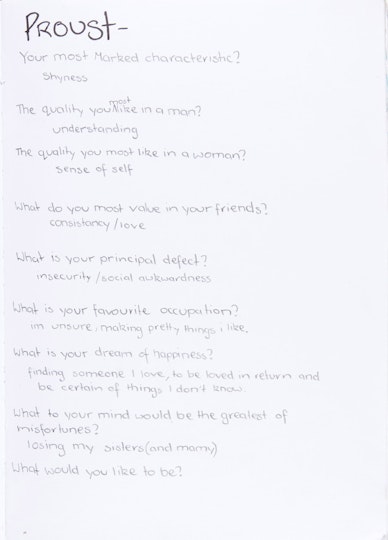 PROUST-
Your most Marked characteristic?
shyness
The quality you most like in a man?
understanding
The quality you most like in a woman?
sense of self
What do you most value in your friends?
consistancy/love
What is your principal defect?
insecurity/social awkwardness
What is your favourite occupation?
im unsure, making pretty things i like.
What is your dream of happiness?
finding someone I love, to be loved in return and
be certain of things I don't know.
What to your mind would be the greatest of
misfortunes?
losing my sisters(and mamy)
What would you like to be?